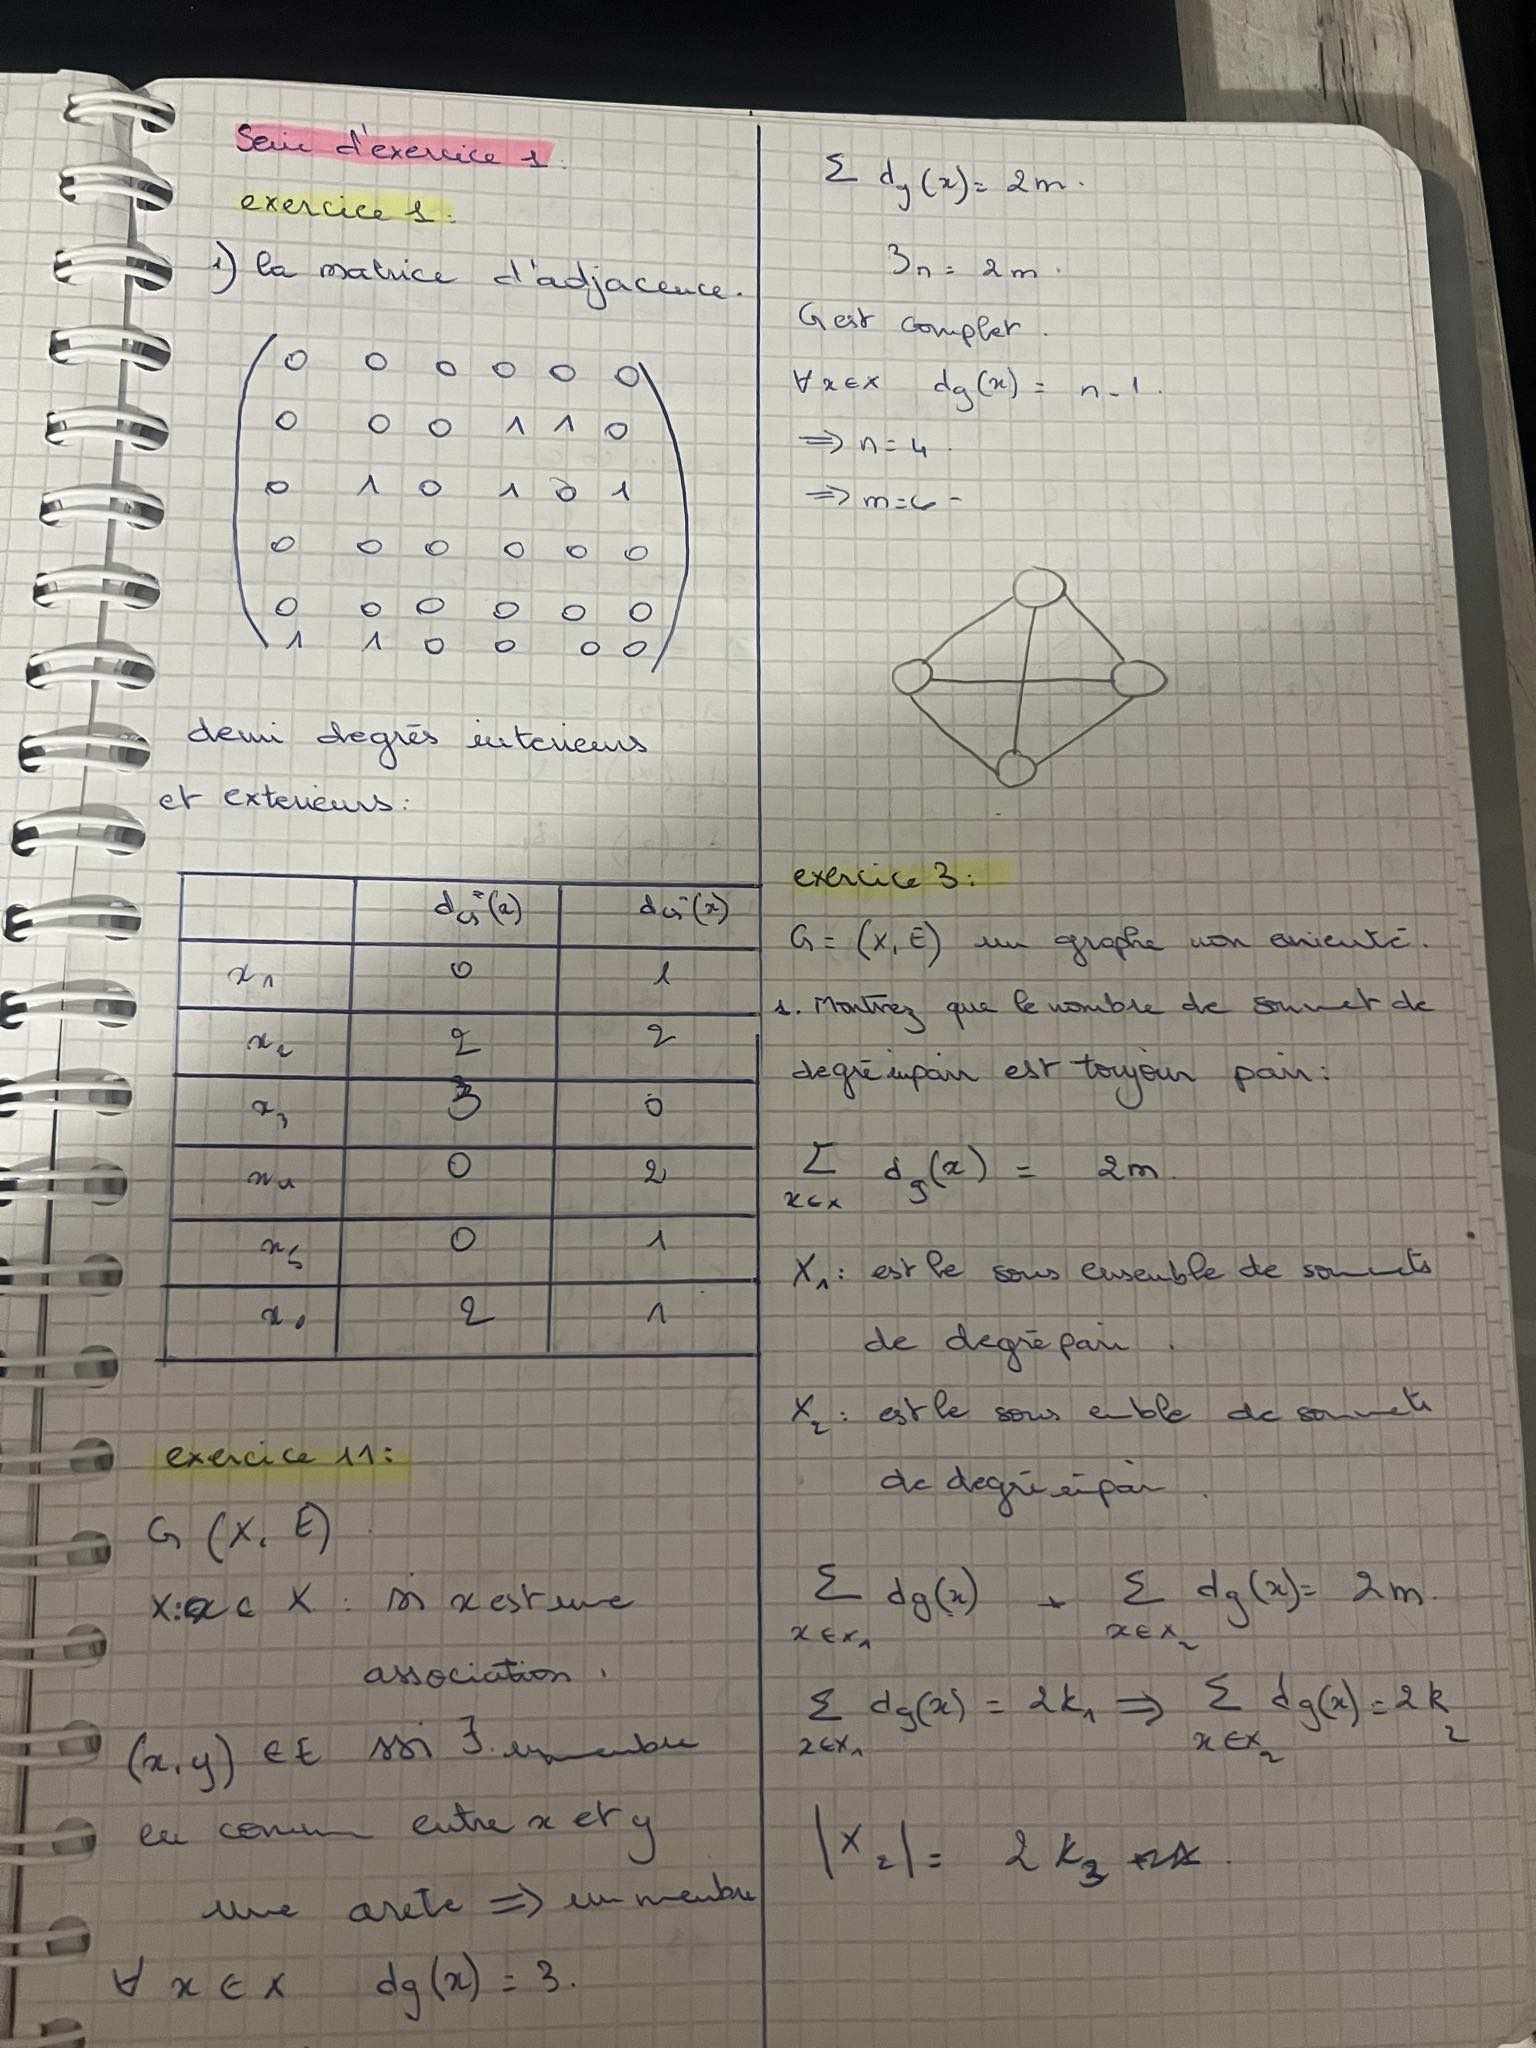 Serie d'exercice 1:
exercice 1:
1) la matrice d'adjacence.
0 0 0 0 0 0
0 0 0 1 1 0
0 1 0 1 0 1
0 0 0 0 0 0
0 0 0 0 0 0
1 1 0 0 0 0
demi degrés interieurs
et exterieurs:
dG⁺(x) dG⁻(x)
x₁ 0 1
x₂ 2 2
x₃ 3 0
x₄ 0 2
x₅ 0 1
x₆ 2 1
exercice 11:
G (X, E)
X: x ∈ X : si x est une
association.
(x,y) ∈ E ssi ∃ un membre
en commun entre x et y
une arete ⇒ un membre
∀ x ∈ X dg(x) = 3.
Σ dg(x) = 2m.
3n = 2m.
G est complet.
∀ x ∈ X dg(x) = n-1.
⇒ n = 4.
⇒ m = 6
exercice 3:
G = (X, E) un graphe non orienté.
1. Montrez que le nombre de sommet de
degré impair est toujour pair:
Σ dg(x) = 2m.
x ∈ X
X₁: est le sous ensemble de sommets
de degré pair.
X₂: est le sous enble de sommets
de degré impair.
Σ dg(x) + Σ dg(x) = 2m.
x ∈ X₁ x ∈ X₂
Σ dg(x) = 2k₁ ⇒ Σ dg(x) = 2k₂
x ∈ X₁ x ∈ X₂
|X₂| = 2k₃